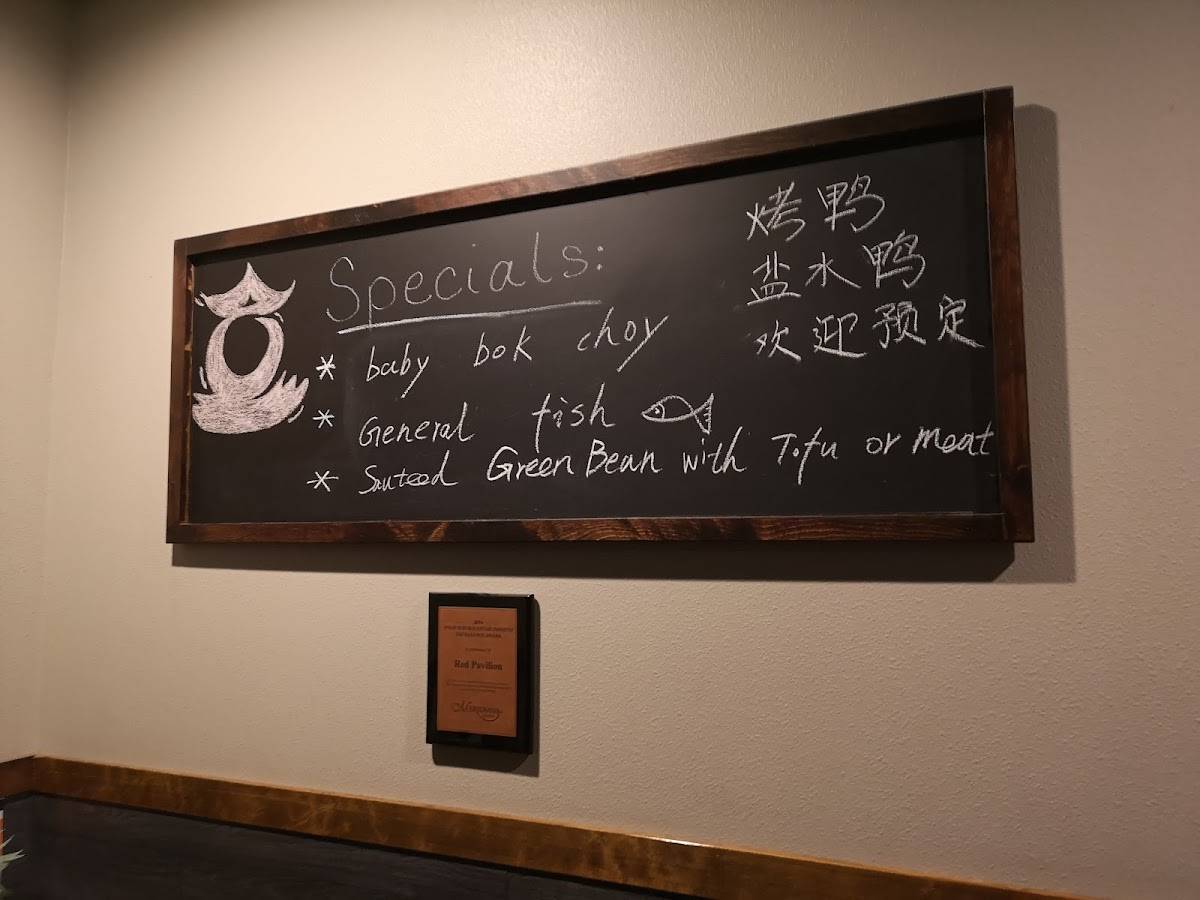 Specials:
* baby bok choy
* General fish
* Sauteed Green Bean with Tofu or meat
烤鸭
盐水鸭
欢迎预定
Red Pavilion